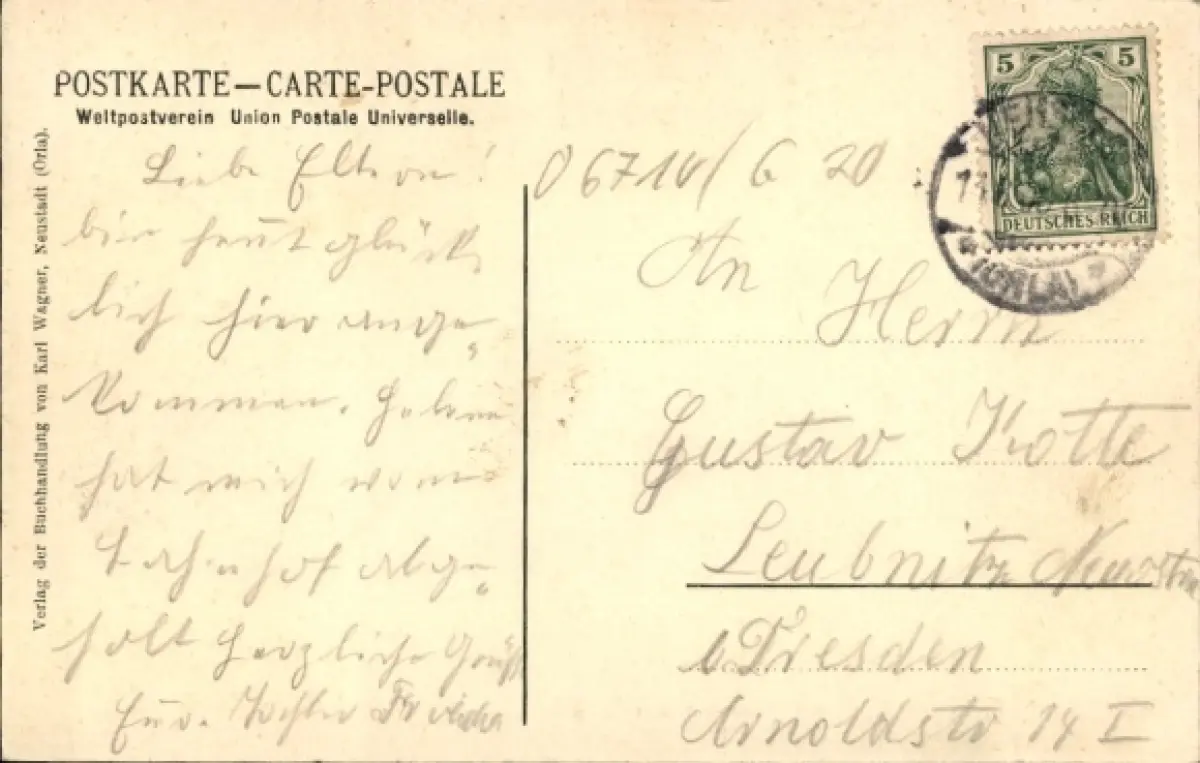 POSTKARTE—CARTE-POSTALE
Weltpostverein Union Postale Universelle.
Verlag der Buchhandlung von Karl Wagner, Neustadt (Orla).
Liebe Eltern!
bin heut glück
lich hier ange„
kommen. Helene
hat mich vom
Bahnhof abge„
holt Herzliche Grüße
Eure Tochter
06714/6 20
5 5
DEUTSCHES REICH
(ORLA)
An
Herrn
Gustav Kotte
Leubnitz Neuostra
b. Dresden
Arnoldstr 14 I